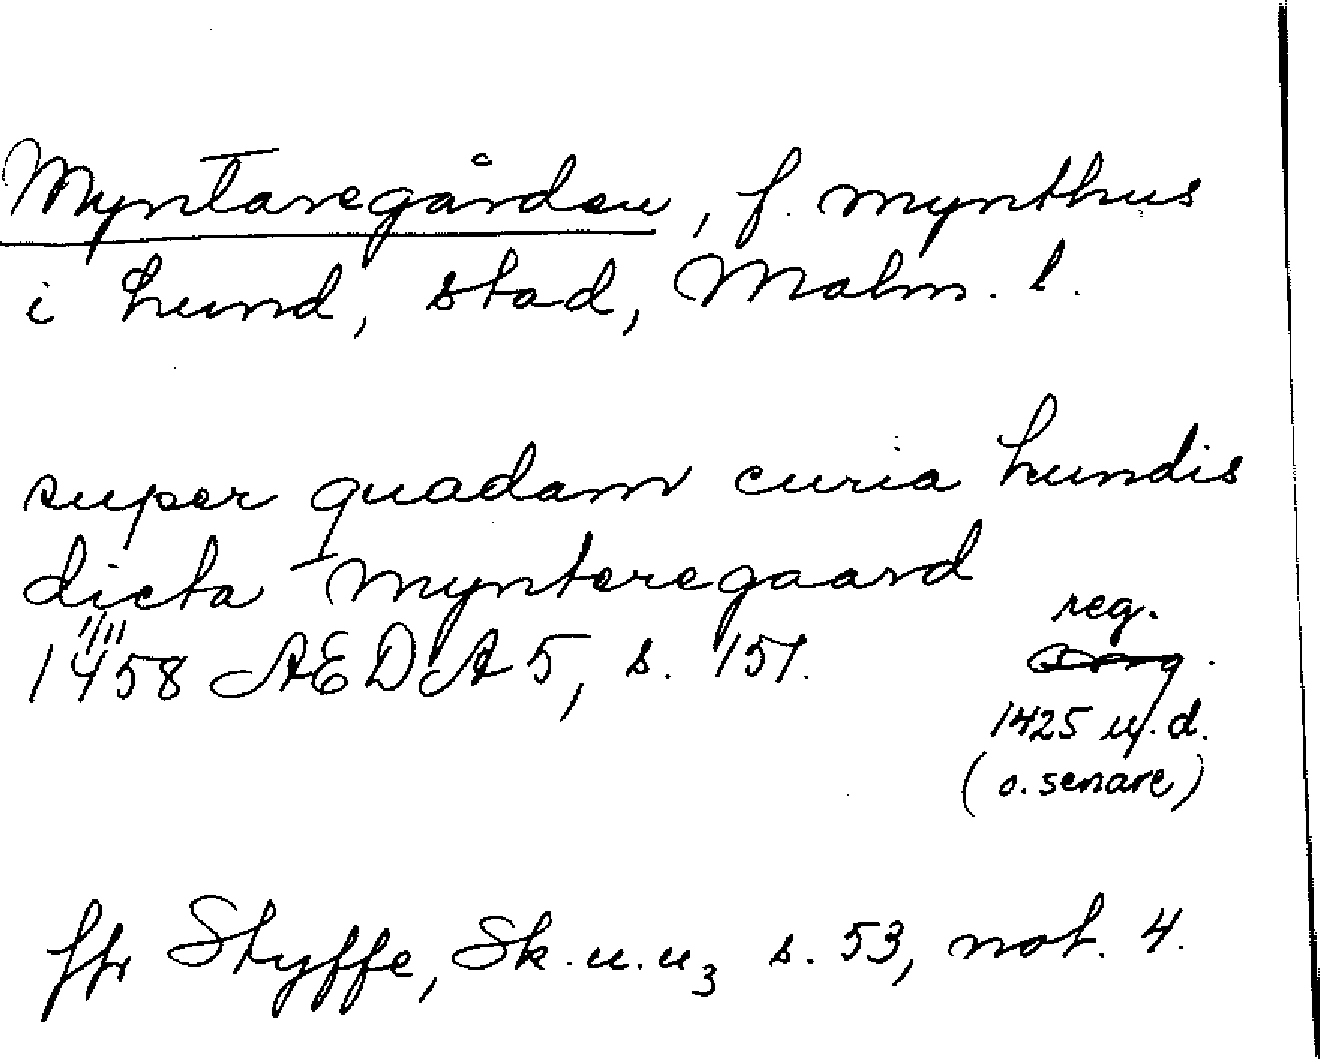 Myntaregården, f. mynthus
i Lund, stad, Malm. l.
super quadam curia Lundis
dicta Mynteregaard
reg.
1458 ÆDA 5, s. 151.
1425 u. d.
(o. senare)
Jfr Styffe, Sk. u. u₃ s. 53, not. 4.